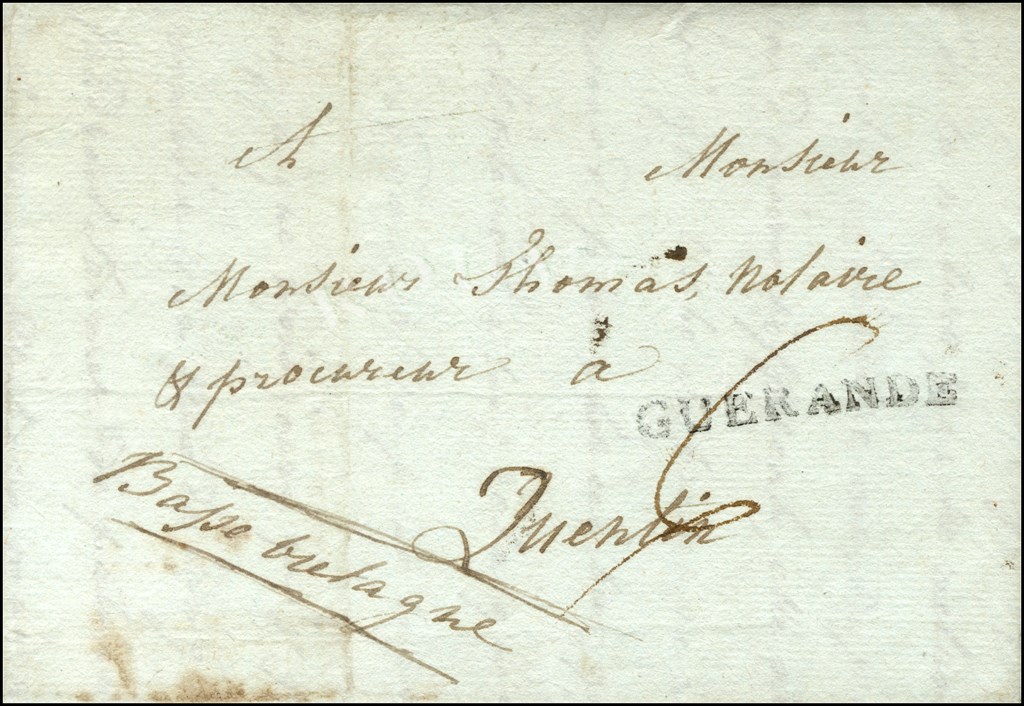 A Monsieur
Monsieur Thomas, Notaire
& procureur à
GUERANDE
Quentin
Basse bretagne